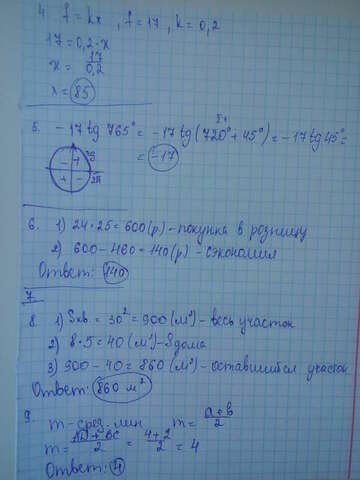 4. f = kx, f = 17, k = 0,2
17 = 0,2 · x
x = 17/0,2
x = 85
5. -17 tg 765° = -17 tg (720° + 45°) = -17 tg 45° =
= -17
6. 1) 24 · 25 = 600 (р) - покупка в розницу
2) 600 - 460 = 140 (р) - сэкономил
Ответ: 140
7
8. 1) Sкв. = 30² = 900 (м²) - весь участок
2) 8 · 5 = 40 (м²) - Sдома
3) 900 - 40 = 860 (м²) - оставшийся участок
Ответ: 860 м²
9. m - сред. лин. m = a + b / 2
m = AD + BC / 2 = 4 + 2 / 2 = 4
Ответ: 4